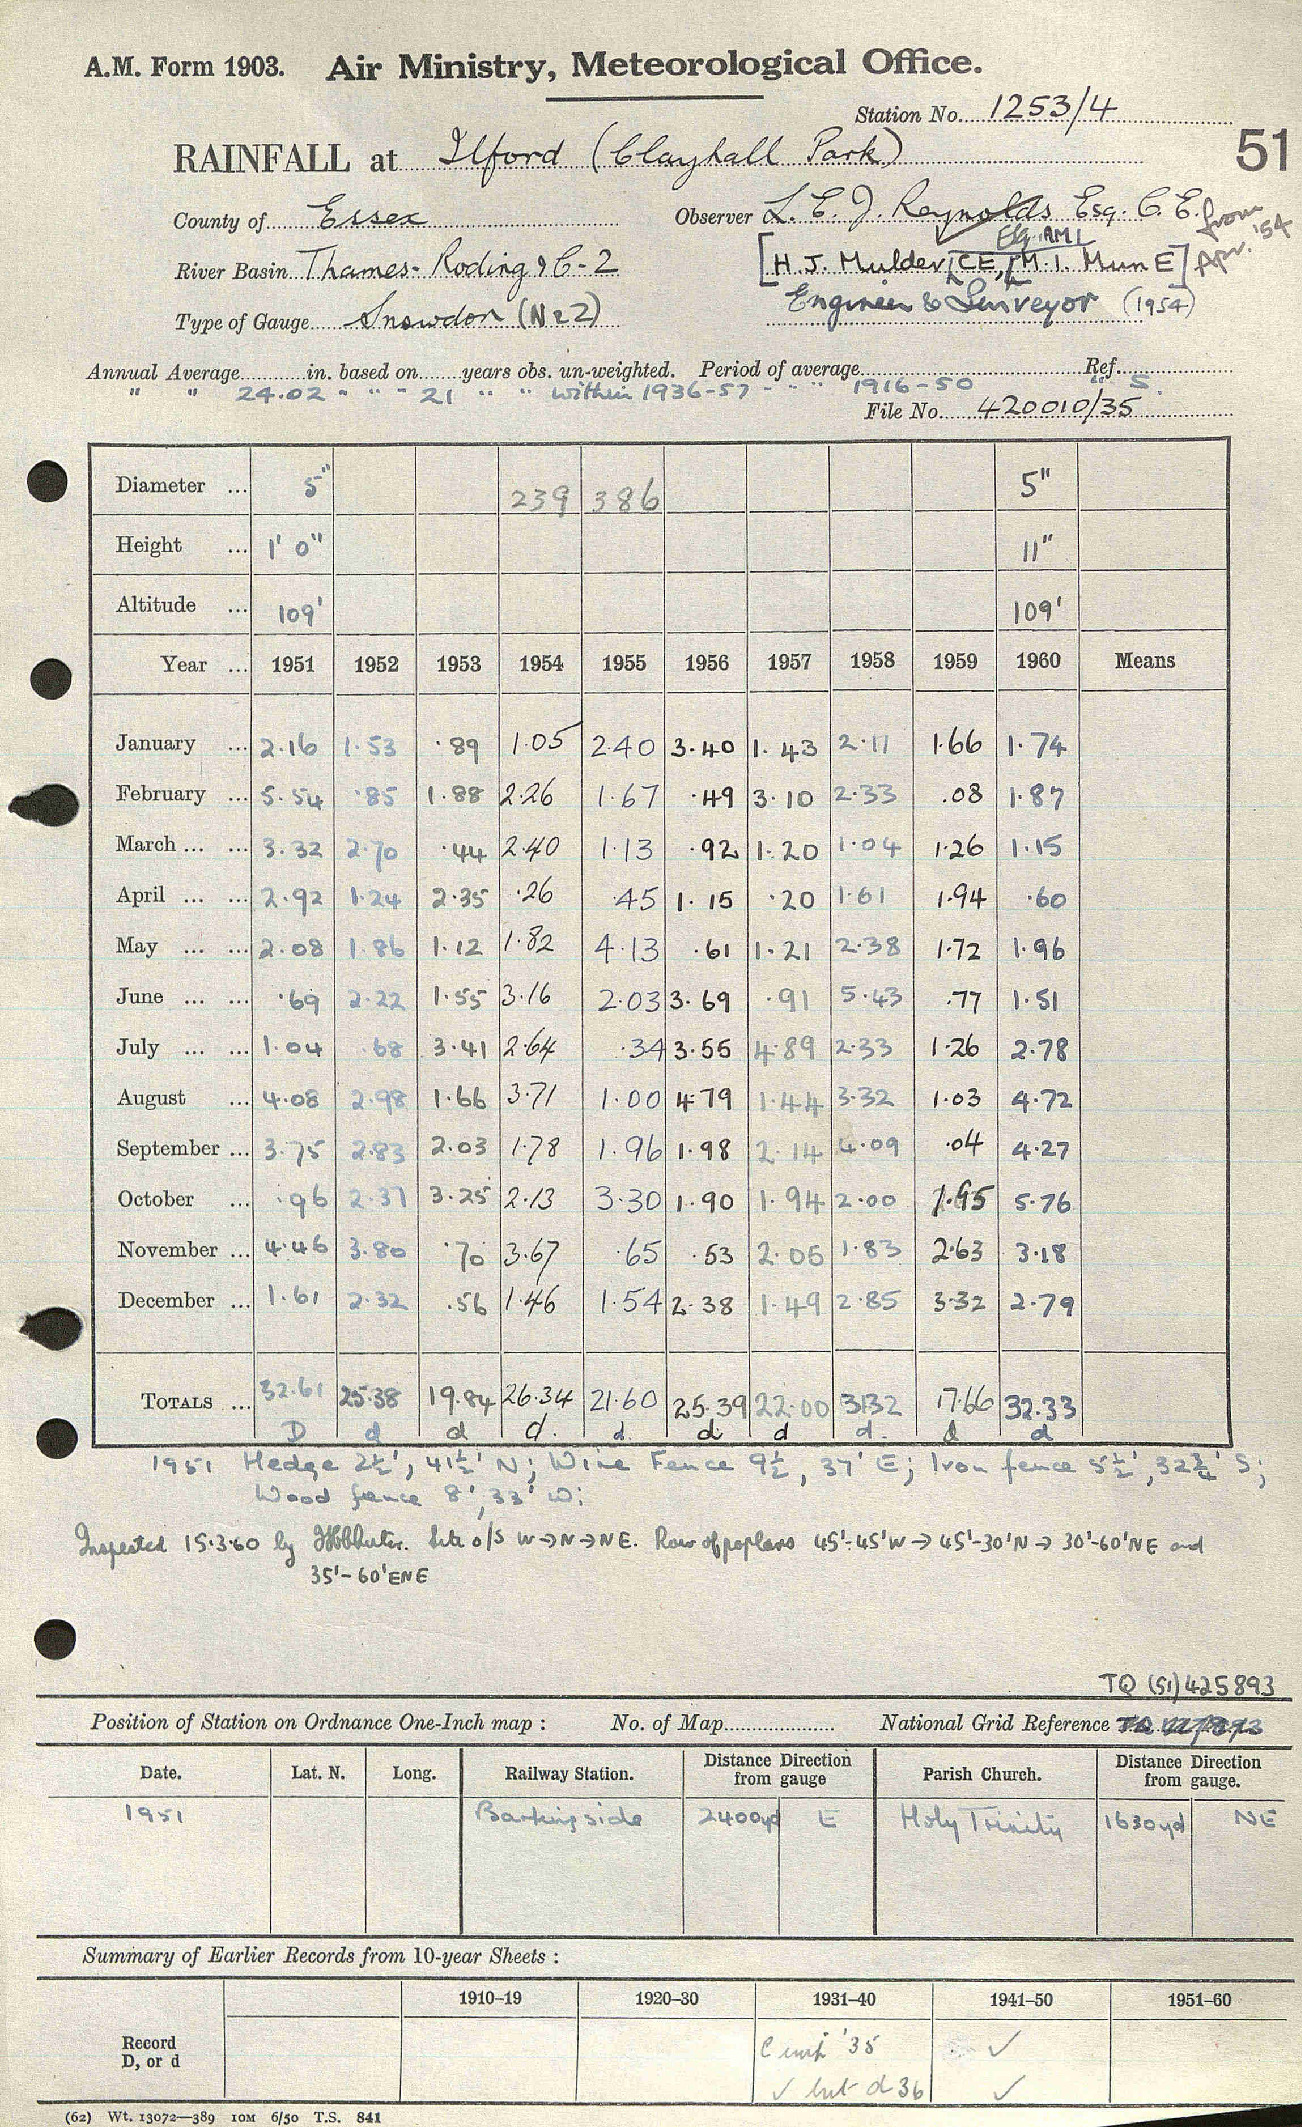 A.M. Form 1903. Air Ministry, Meteorological Office.
Station No. 1253/4
51
RAINFALL at Ilford (Clayhall Park)
County of Essex Observer L. E. J. Reynolds Esq. C.E.
from Apr. '54
Esq. AMI
River Basin Thames - Roding 9 C-2 [H. J. Mulder, CE, M.I. Mun E]
Type of Gauge Snowdon (No 2) Engineer & Surveyor (1954)
Annual Average in. based on years obs. un-weighted. Period of average Ref.
" " 24.02 " " " 21 " " within 1936-57 " " " 1916-50 " S.
File No. 420010/35
Diameter ... 5" 239 386 5"
Height ... 1' 0" 11"
Altitude ... 109' 109'
Year ... 1951 1952 1953 1954 1955 1956 1957 1958 1959 1960 Means
January ... 2.16 1.53 .89 1.05 2.40 3.40 1.43 2.11 1.66 1.74
February ... 5.54 .85 1.88 2.26 1.67 .49 3.10 2.33 .08 1.87
March ... ... 3.32 2.70 .44 2.40 1.13 .92 1.20 1.04 1.26 1.15
April ... ... 2.92 1.24 2.35 .26 .45 1.15 .20 1.61 1.94 .60
May ... ... 2.08 1.86 1.12 1.82 4.13 .61 1.21 2.38 1.72 1.96
June ... ... .69 2.22 1.55 3.16 2.03 3.69 .91 5.43 .77 1.51
July ... ... 1.04 .68 3.41 2.64 .34 3.55 4.89 2.33 1.26 2.78
August ... 4.08 2.98 1.66 3.71 1.00 4.79 1.44 3.32 1.03 4.72
September ... 3.75 2.83 2.03 1.78 1.96 1.98 2.14 4.09 .04 4.27
October ... .96 2.37 3.25 2.13 3.30 1.90 1.94 2.00 1.95 5.76
November ... 4.46 3.80 .70 3.67 .65 .53 2.05 1.83 2.63 3.18
December ... 1.61 2.32 .56 1.46 1.54 2.38 1.49 2.85 3.32 2.79
TOTALS ... 32.61 25.38 19.84 26.34 21.60 25.39 22.00 31.32 17.66 32.33
D d d d. d. d d d. d d
1951 Hedge 2½', 41½' N; Wire Fence 9½, 37' E; Iron fence 5½', 32¾' S;
Wood fence 8', 33' W;
Inspected 15.3.60 by Site o/s W→N→NE. Row of poplars 45'-45'W → 45'-30'N → 30'-60'NE and
35'-60'ENE
TQ (51) 425893
Position of Station on Ordnance One-Inch map : No. of Map National Grid Reference
Date. Lat. N. Long. Railway Station. Distance Direction from gauge Parish Church. Distance Direction from gauge.
1951 Barkingside 2400yd E Holy Trinity 1630yd NE
Summary of Earlier Records from 10-year Sheets :
1910–19 1920–30 1931–40 1941–50 1951–60
Record '35 ✓
D, or d ✓ but d 36 ✓
(62) Wt. 13072—389 10M 6/50 T.S. 841